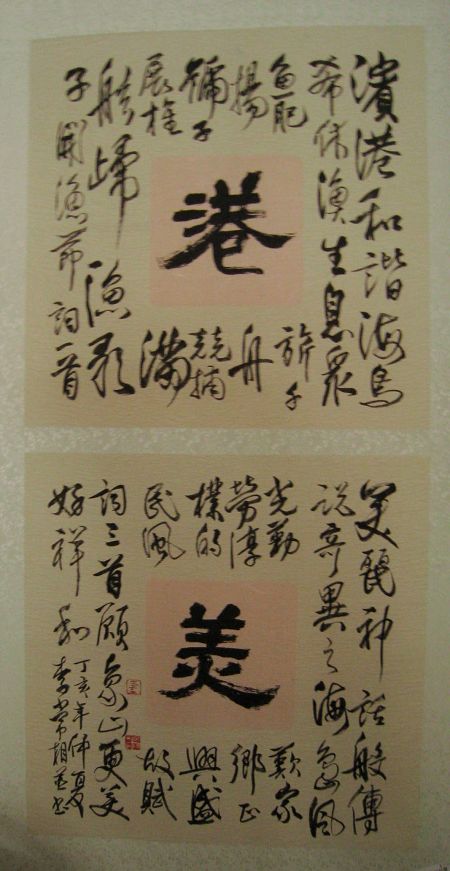 濱港和諧海島
希休漁生息眾
魚肥
揚
號子
展
港
千
舟
競捕
滿
歸漁歌
子開漁節詞一首
美麗神話般傳
說奇異之海島風
光勤
勞淳
樸的
民風
美
歎家
鄉正
興盛
故賦
詞三首願象山更美
好祥和
丁亥年仲夏
李常相並書